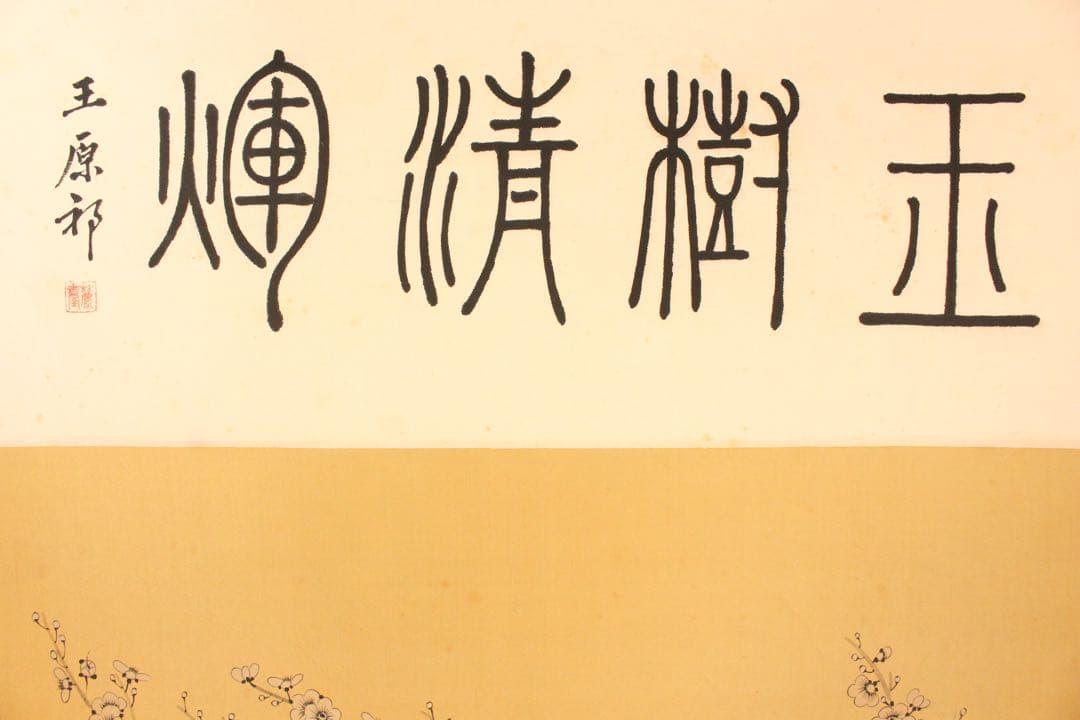 玉樹清煇
王原祁